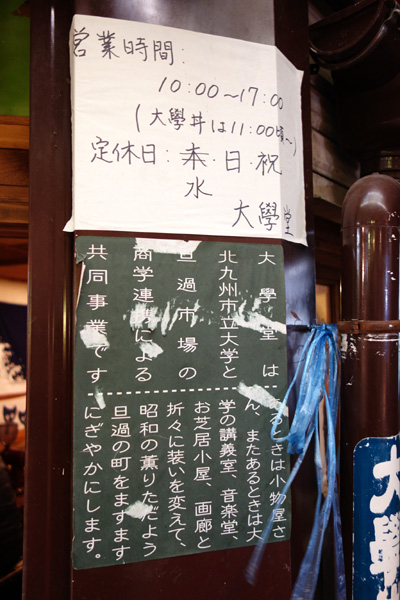 営業時間:
10:00〜17:00
(大學丼は11:00頃〜)
定休日:木・日・祝
水
大學堂
大學堂は
北九州市立大学と
旦過市場の
商学連携による
共同事業です
あるときは小物屋さ
ん、またあるときは大
学の講義室、音楽堂、
お芝居小屋、画廊と
折々に装いを変えて、
昭和の薫りただよう
旦過の町をますます
にぎやかにします。
大學